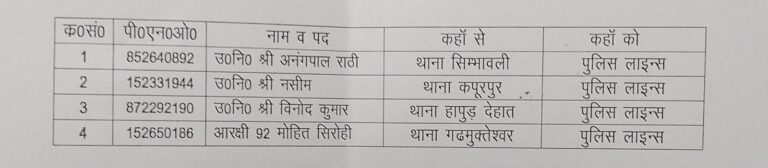 क0सं0 पी0एन0ओ0 नाम व पद कहॉ से कहॉ को
1 852640892 उ0नि0 श्री अनंगपाल राठी थाना सिम्भावली पुलिस लाइन्स
2 152331944 उ0नि0 श्री नसीम थाना कपूरपुर पुलिस लाइन्स
3 872292190 उ0नि0 श्री विनोद कुमार थाना हापुड़ देहात पुलिस लाइन्स
4 152650186 आरक्षी 92 मोहित सिरोही थाना गढमुक्तेश्वर पुलिस लाइन्स